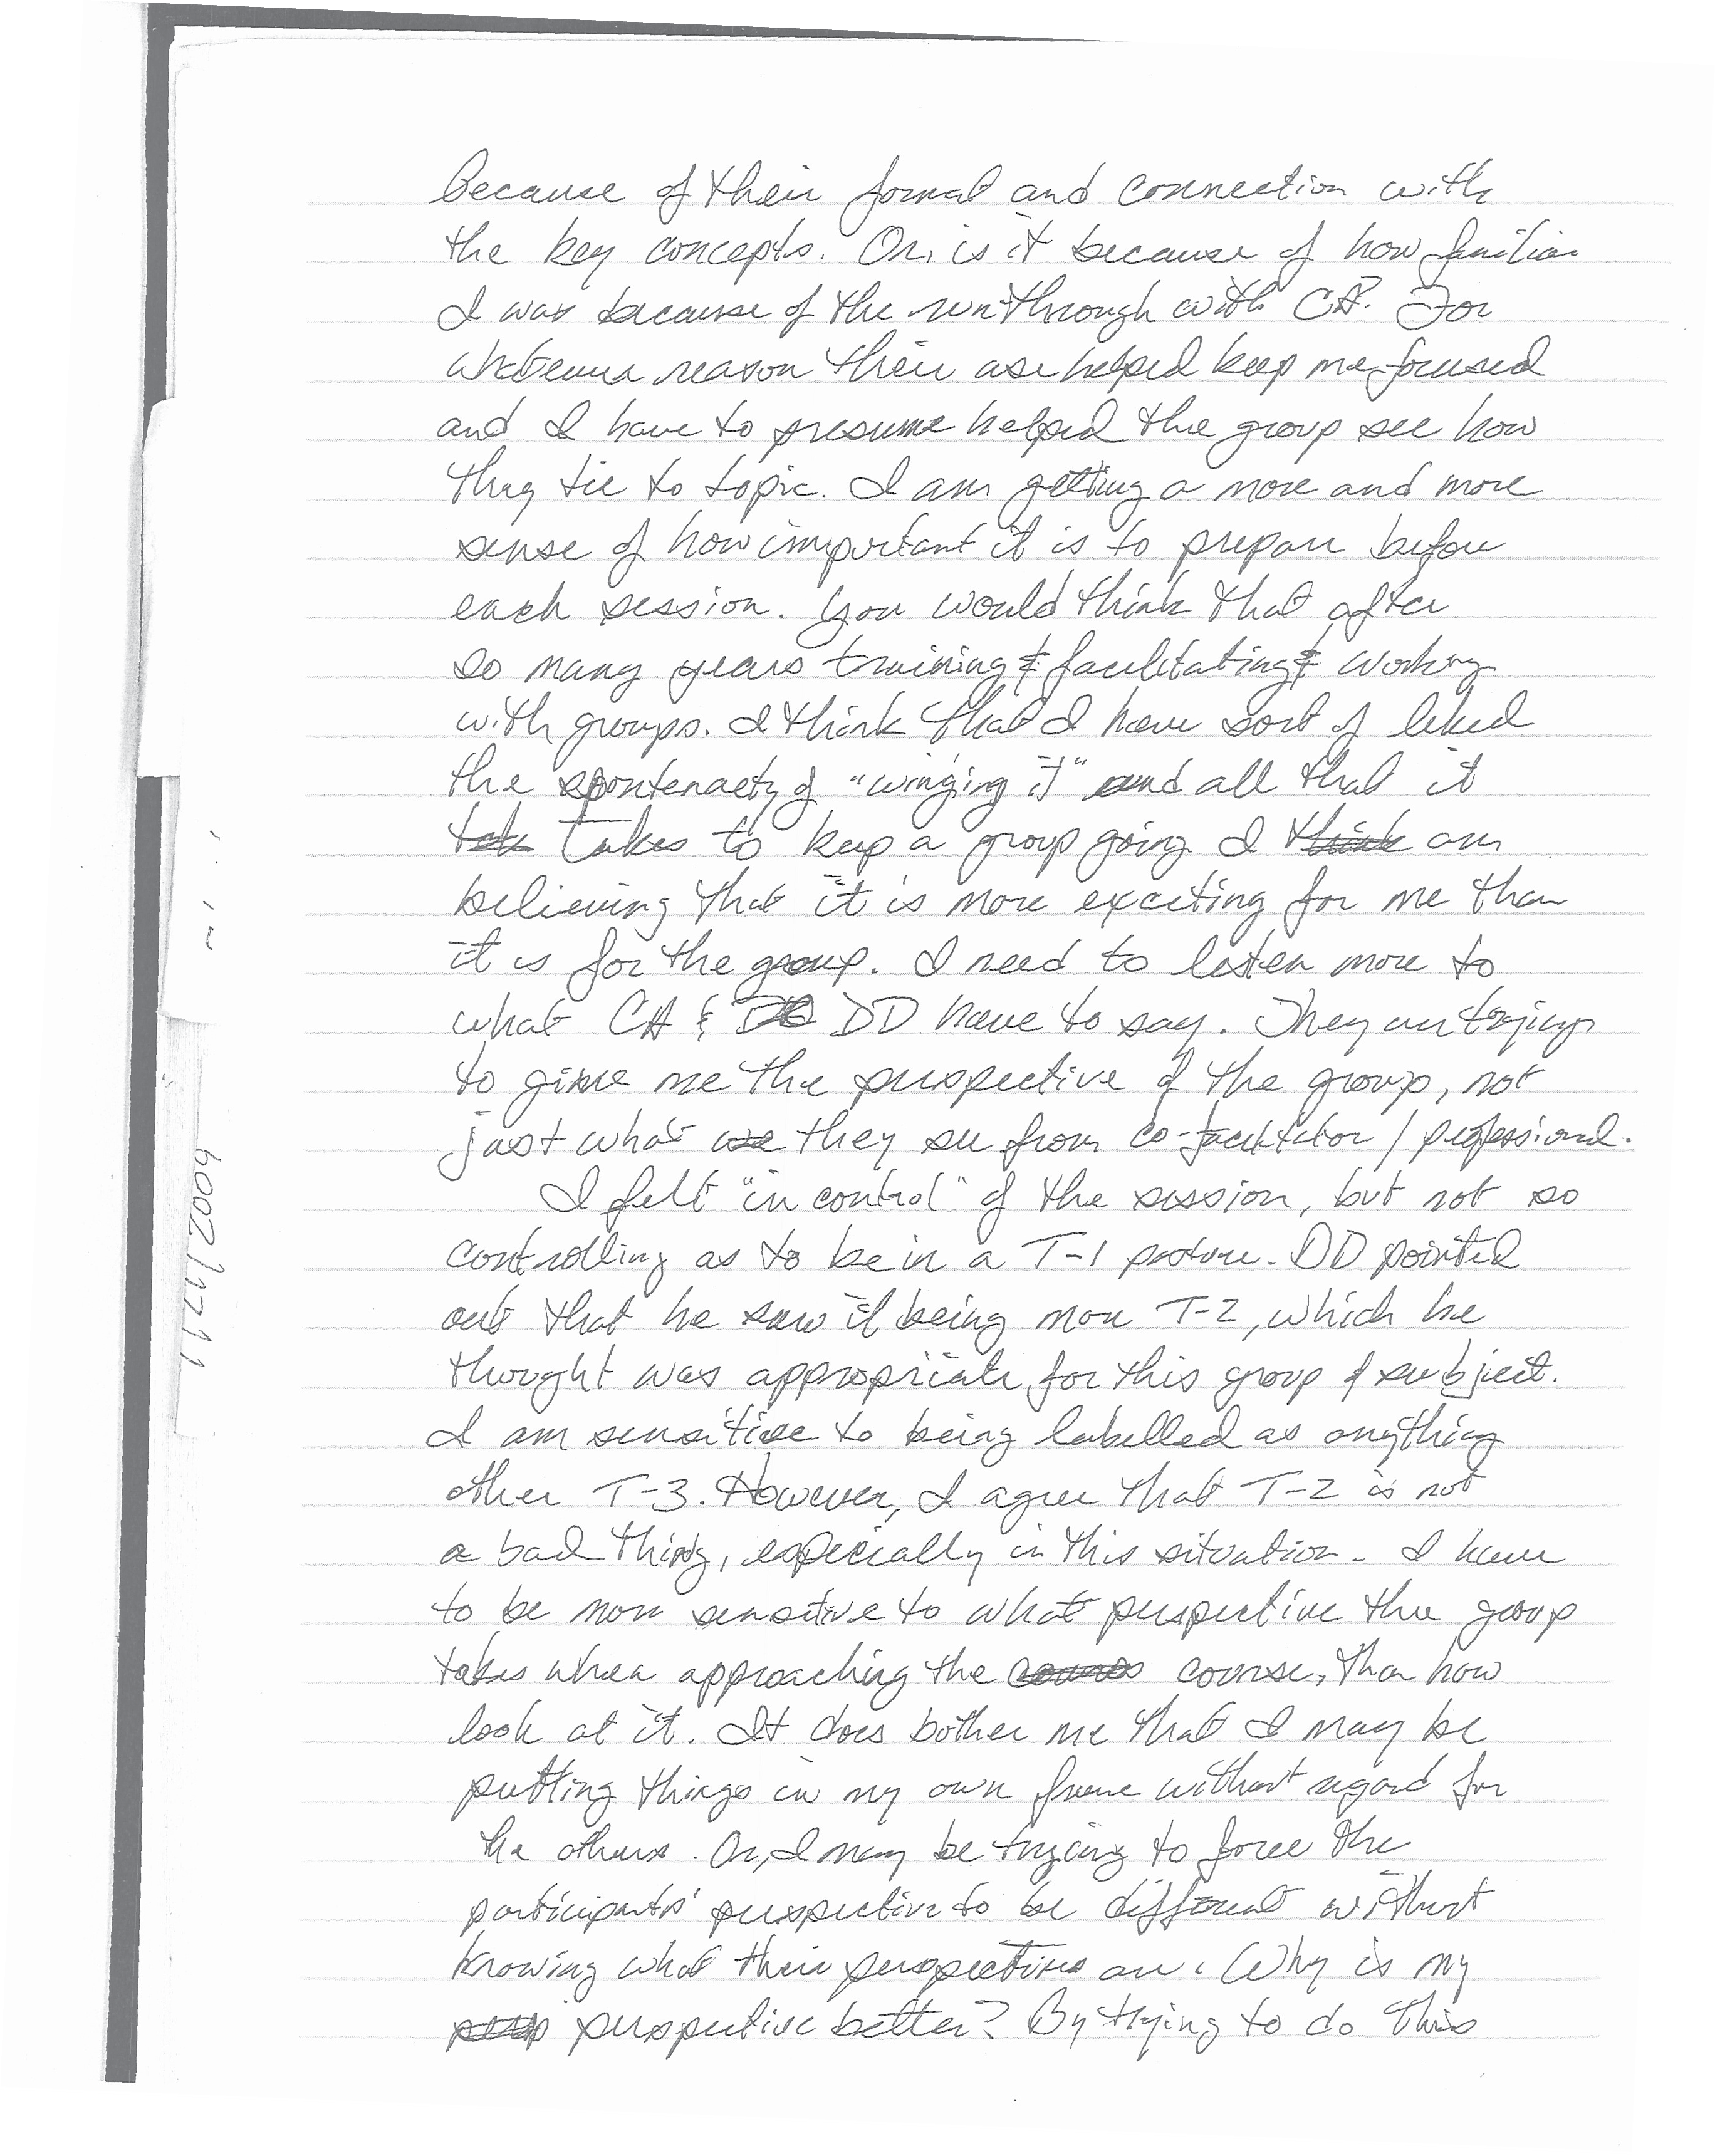 because of their format and connection with
the key concepts. Or, is it because of how familiar
I was because of the run through with CA? For
whatever reason their use helped keep me focused
and I have to presume helped the group see how
they tie to topic. I am getting a more and more
sense of how important it is to prepare before
each session. You would think that after
so many years training & facilitating & working
with groups. I think that I have sort of liked
the spontenaety of "winging it" and all that it
takes to keep a group going I think am
believing that it is more exciting for me than
it is for the group. I need to listen more to
what CA & DD have to say. They are trying
to give me the perspective of the group, not
just what they see from co-facilitator / professional.
I felt "in control" of the session, but not so
controlling as to be in a T-1 posture. DD pointed
out that he saw it being more T-2, which he
thought was appropriate for this group & subject.
I am sensitive to being labelled as anything
other T-3. However, I agree that T-2 is not
a bad thing, especially in this situation. I have
to be more sensitive to what perspective the group
takes when approaching the course, than how
look at it. It does bother me that I may be
putting things in my own frame without regard for
the others. Or, I may be trying to force the
participants' perspective to be different without
knowing what their perspectives are. Why is my
perspective better? By trying to do this
11/24/2009